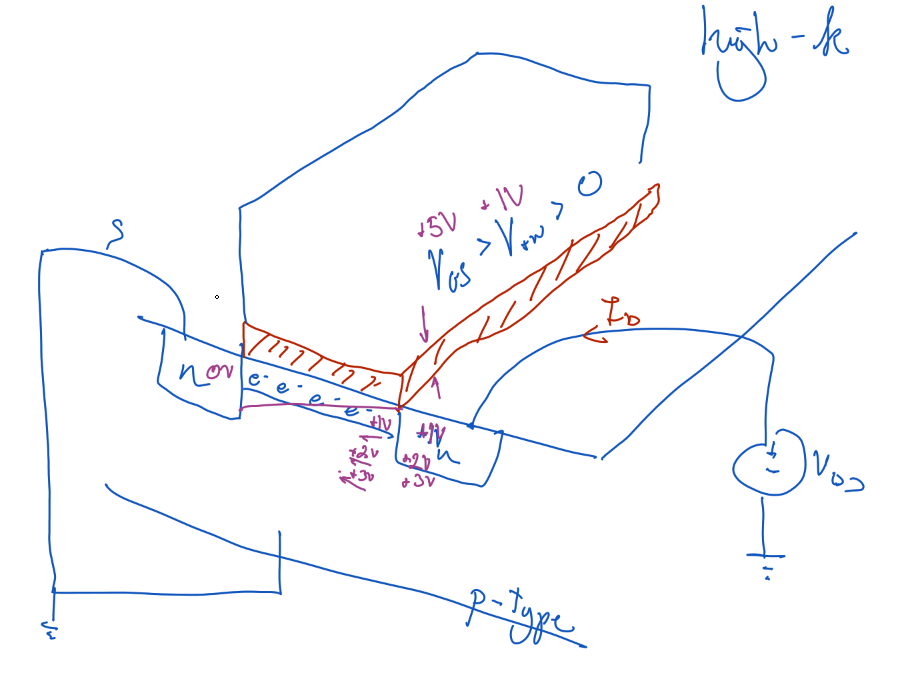 high-k
+5V +1V
V_GS > V_tn > 0
S
I_D
n 0V e- e- e- e-
+1V +1V
n
+2V +2V
+3V +3V
V_DD
p-type